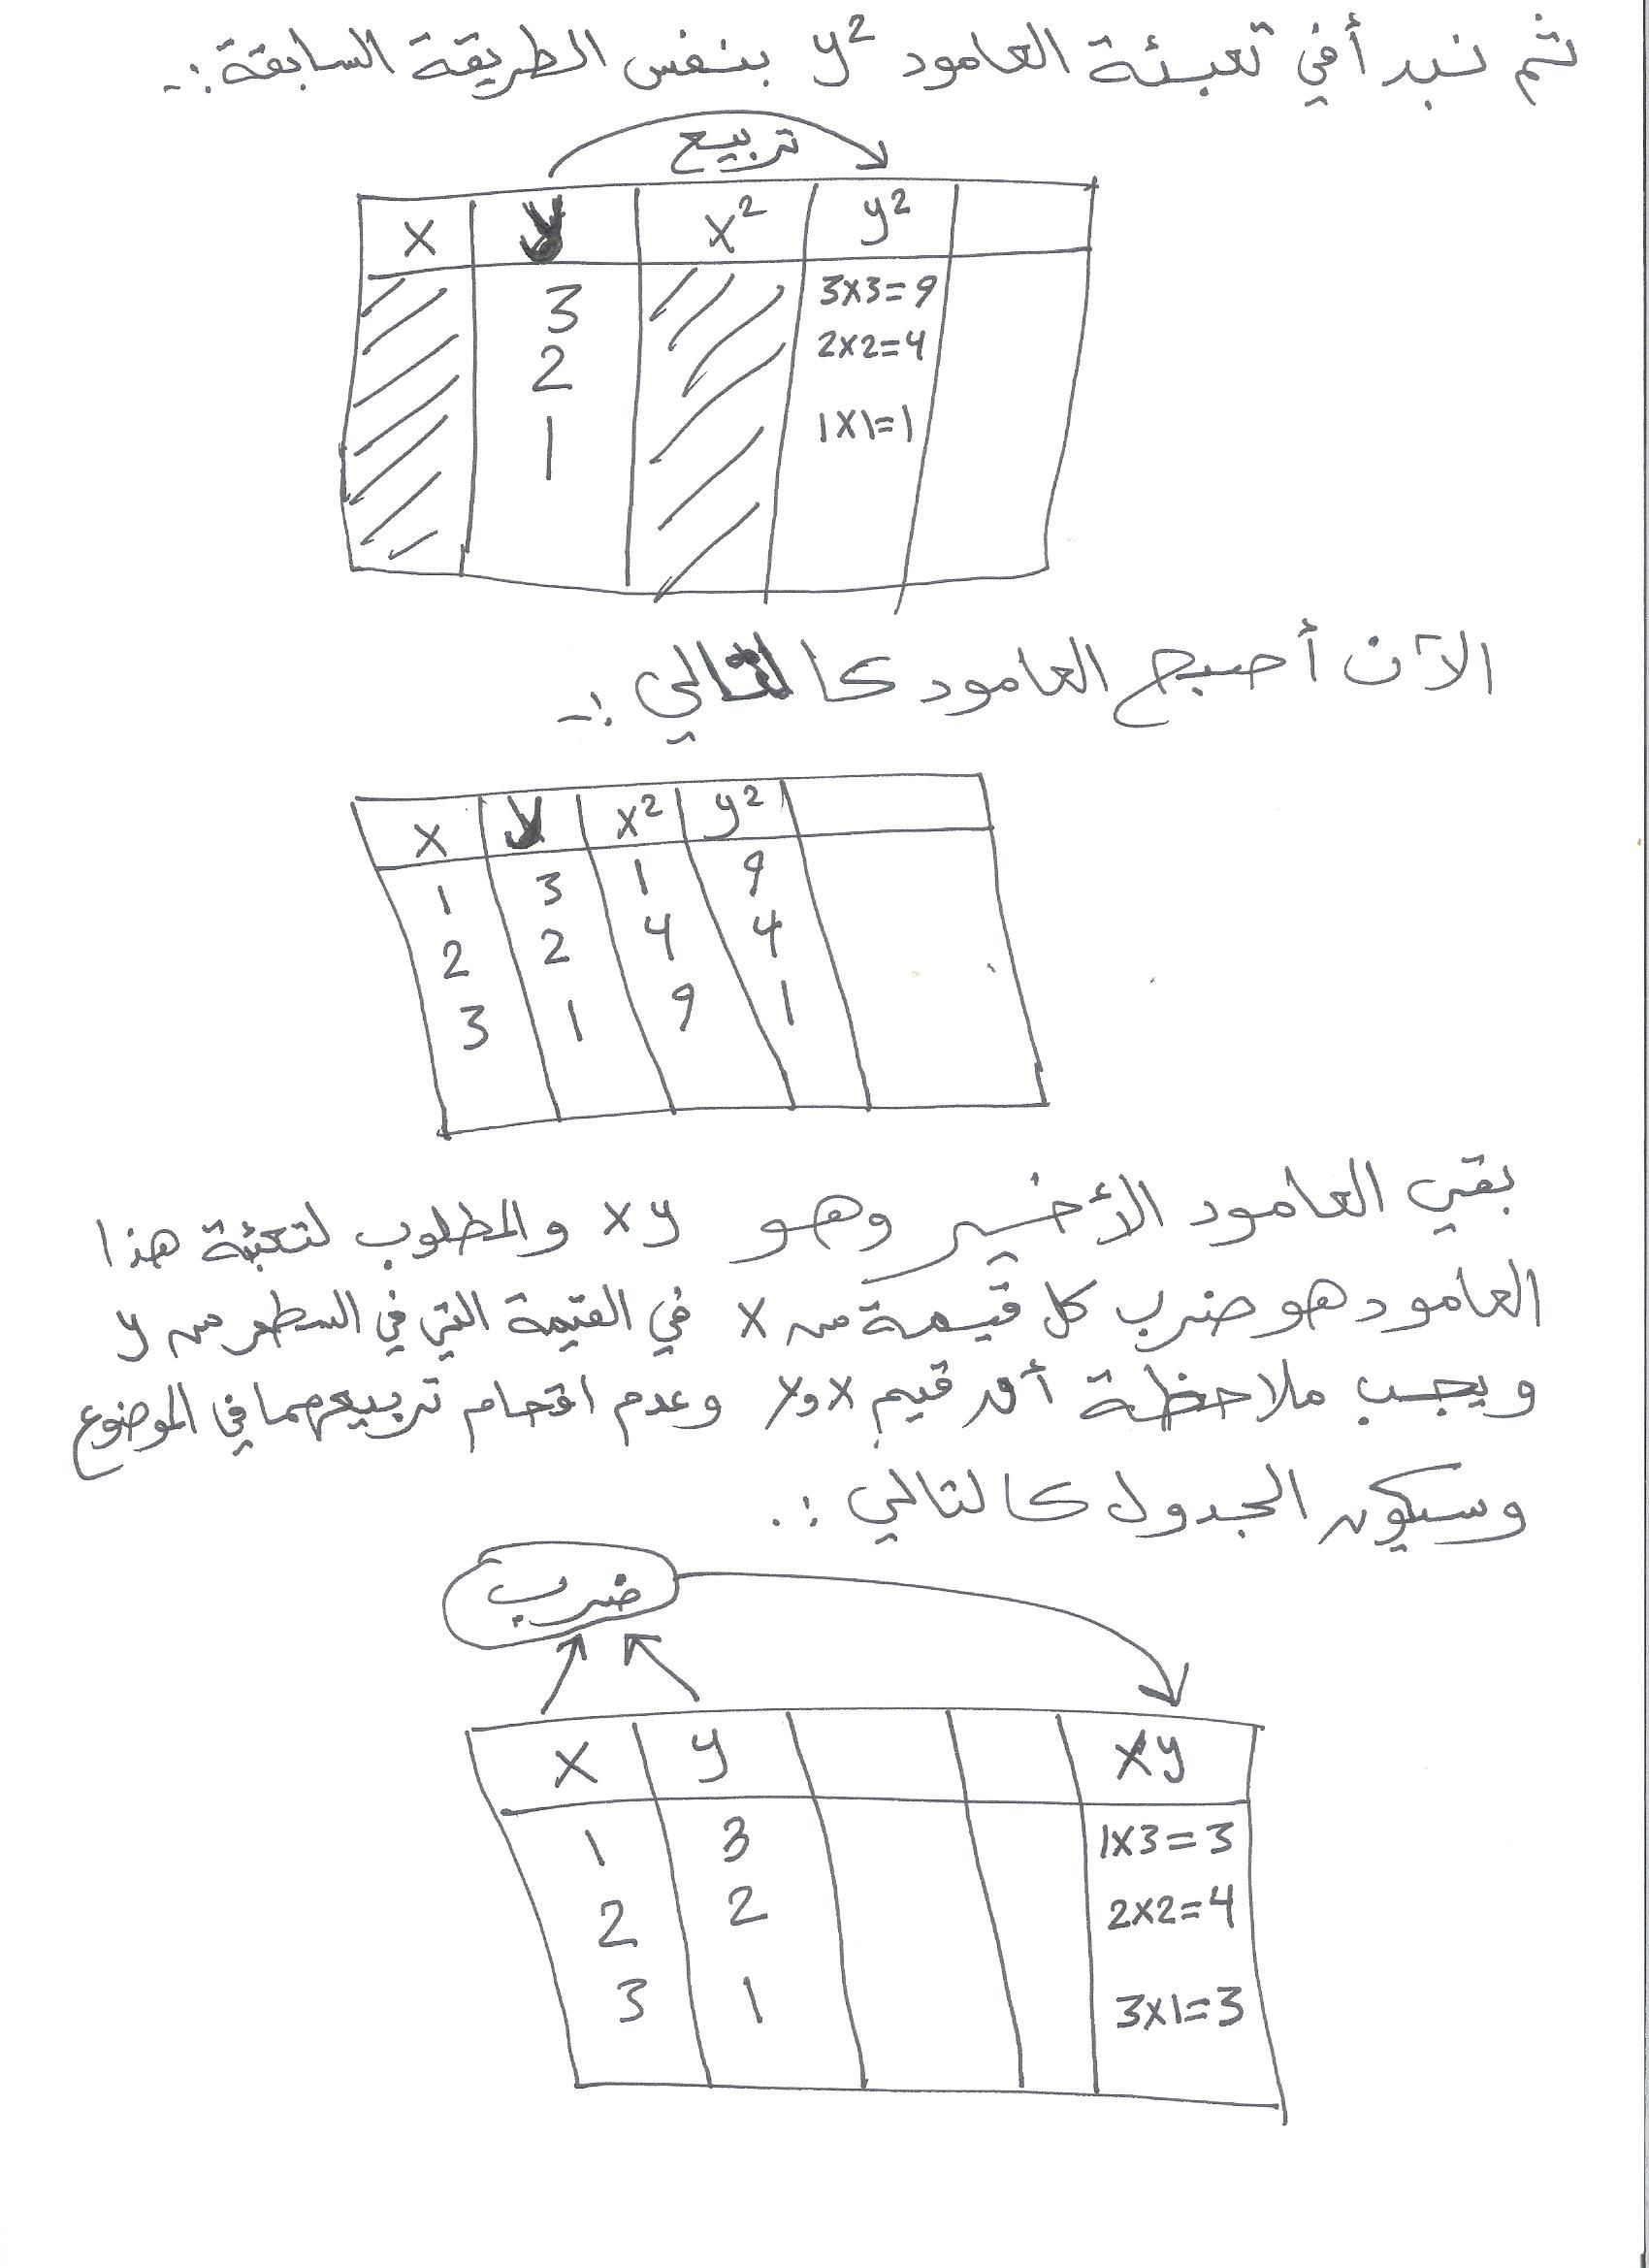 ثم نبدأ في تعبئة العامود y² بنفس الطريقة السابقة :-
تربيع
x y x² y²
3 3x3=9
2 2x2=4
1 1x1=1
الآن أصبح العامود كالتالي :-
x y x² y²
1 3 1 9
2 2 4 4
3 1 9 1
بقي العامود الأخير وهو xy والمطلوب لتعبئة هذا
العامود هو ضرب كل قيمة من x في القيمة التي في السطر من y
ويجب ملاحظة قيم x و y وعدم اقحام تربيعهما في الموضوع
وسيكون الجدول كالتالي :.
ضرب
x y xy
1 3 1x3=3
2 2 2x2=4
3 1 3x1=3